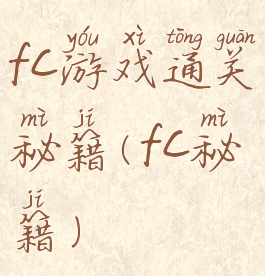 yóu xì tōng guān
fC游戏通关
mì jí mì
秘籍(fC秘
jí
籍)